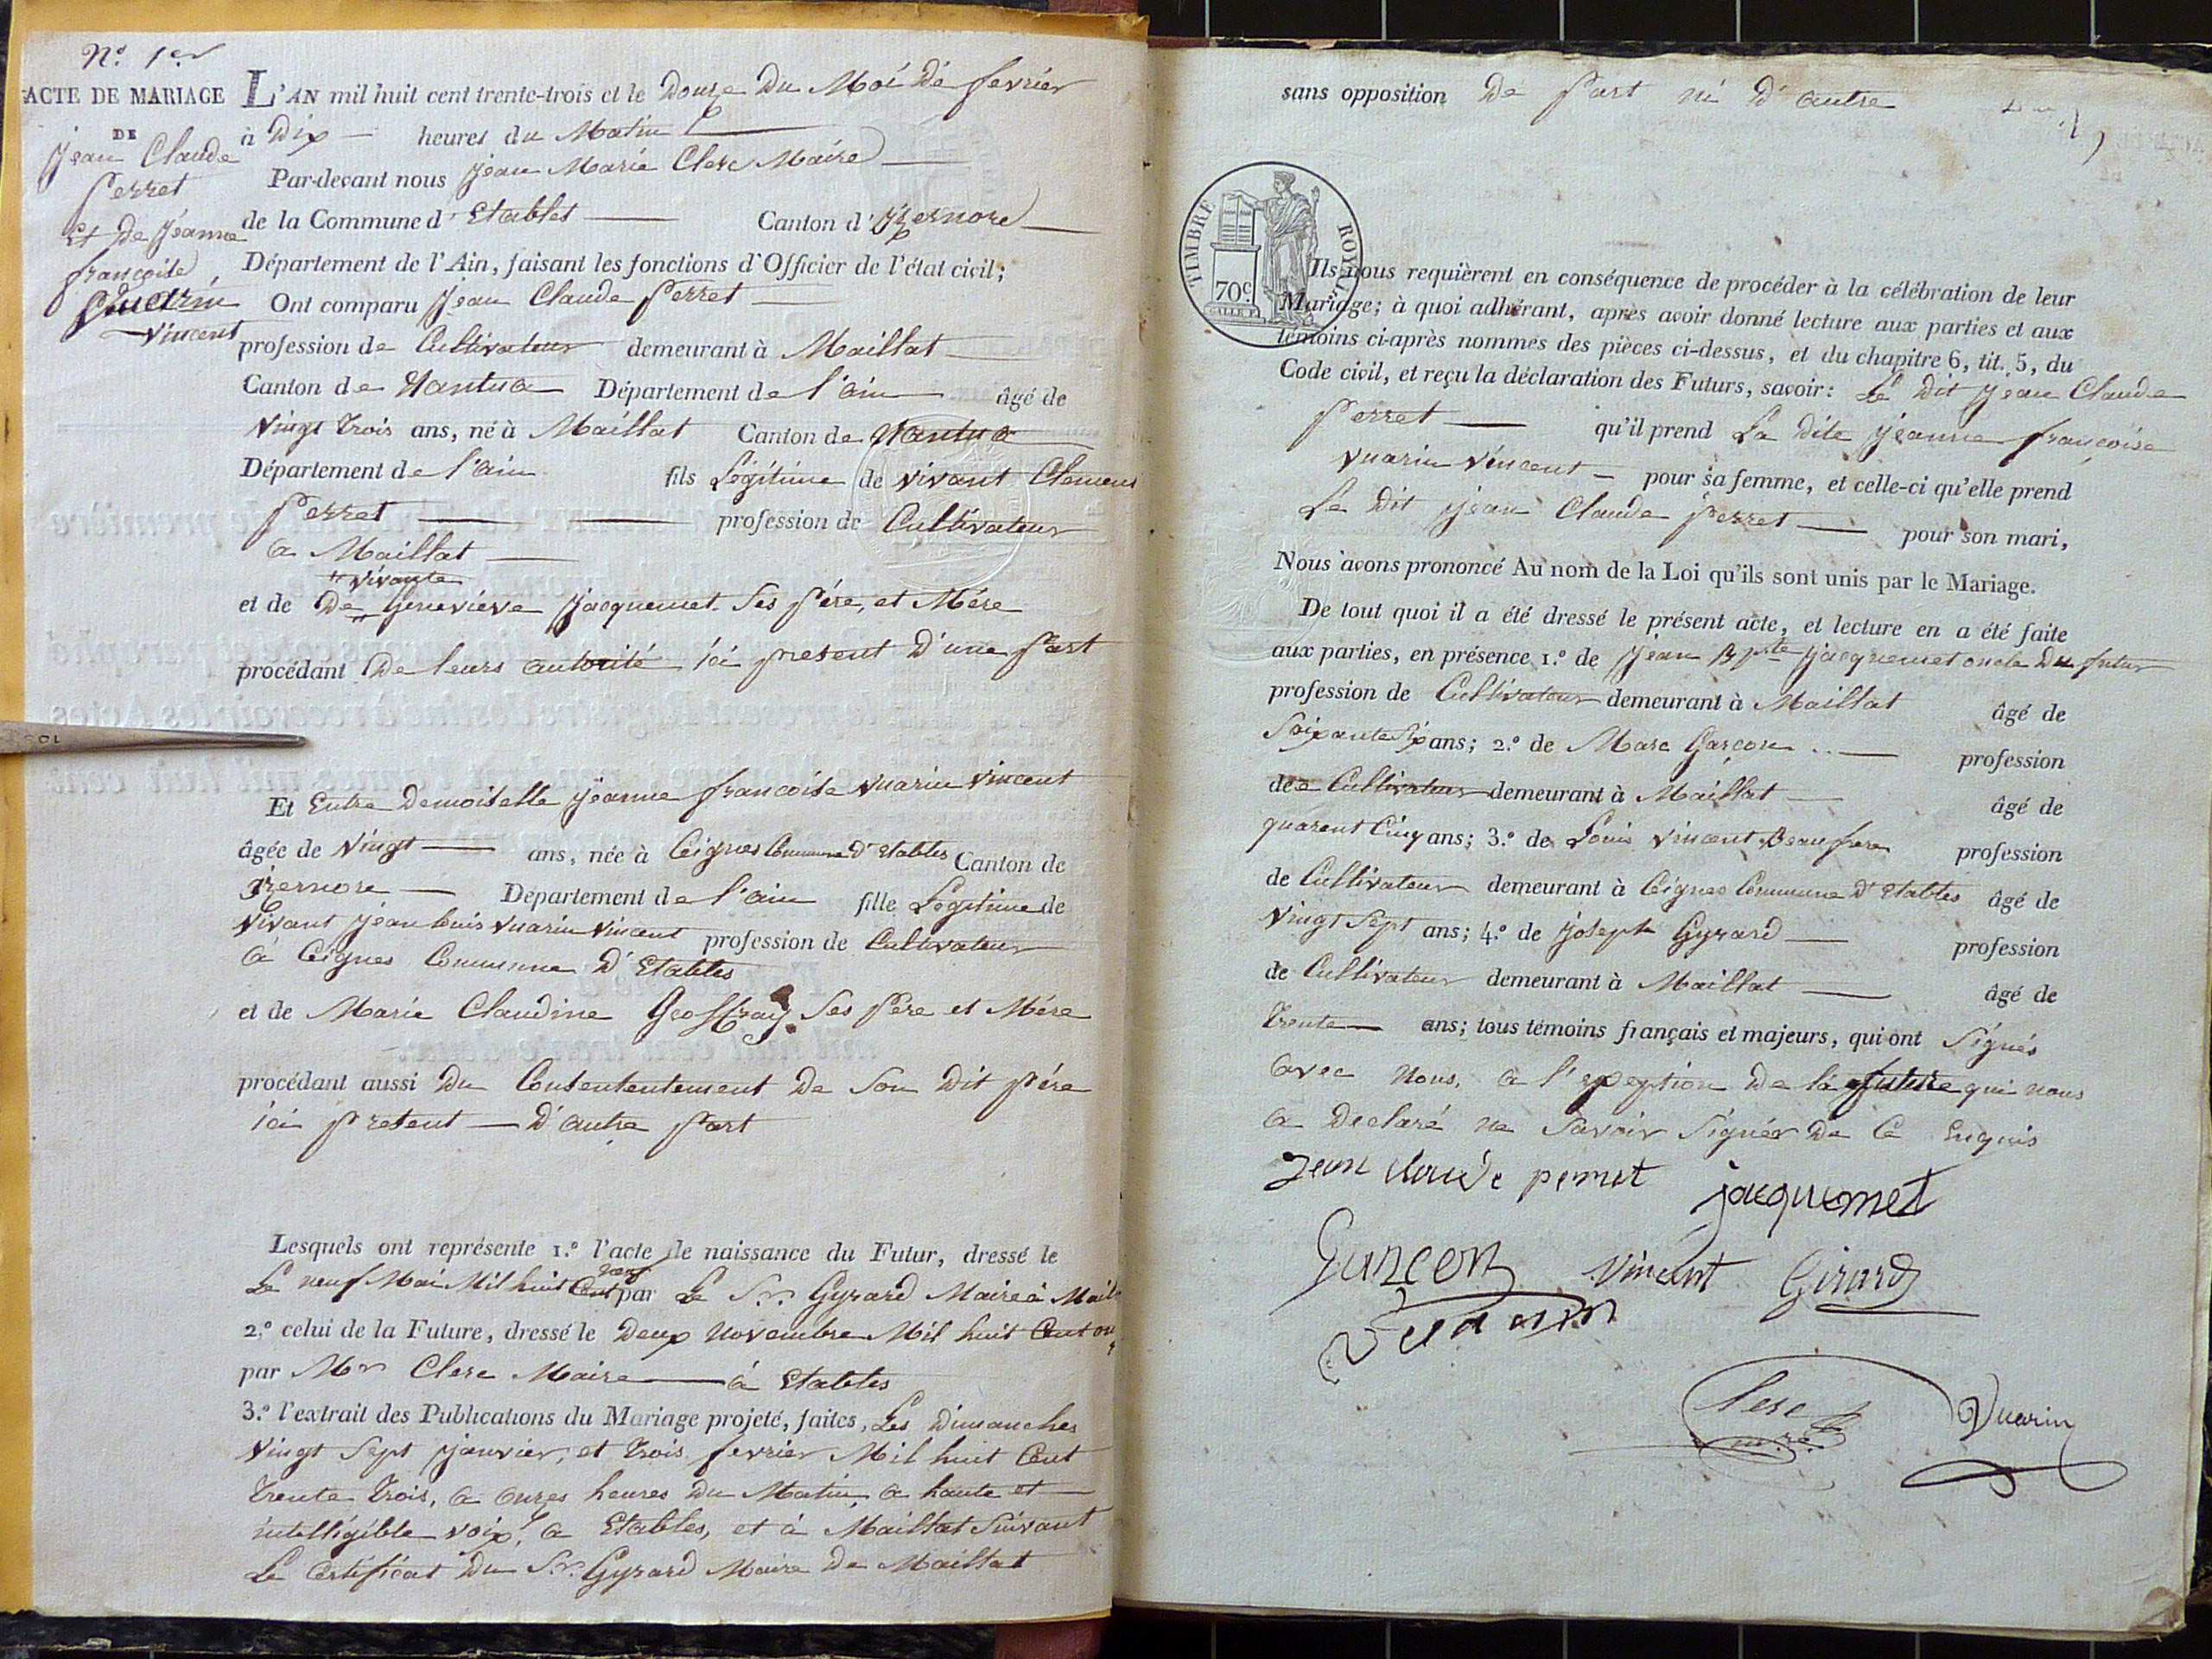 N.º 1er
ACTE DE MARIAGE
DE
Jean Claude
Perret
Et De Jeanne
françoise
Vuarin
Vincent
L'AN mil huit cent trente-trois et le Douze Du Moi De fevrier
à Dix heures du Matin
Par-devant nous Jean Marie Clerc Maire
de la Commune d' Etables Canton d' Izernore
Département de l'Ain, faisant les fonctions d'Officier de l'état civil;
Ont comparu Jean Claude Perret
profession de Cultivateur demeurant à Maillat
Canton de Nantua Département de l'ain âgé de
Vingt Trois ans, né à Maillat Canton de Nantua
Département de l'ain fils Légitime de vivant Clement
Perret profession de Cultivateur
a Maillat
vivante
et de De Geneviève Jacquemet Ses Père, et Mère
procédant De leurs autorité ici present D'une Part
Et Entre Demoiselle Jeanne françoise Vuarin Vincent
âgée de Vingt ans, née à Ceignes Commune D'Etables Canton de
Izernore Département de l'ain fille Légitime de
Vivant Jean Louis Vuarin Vincent profession de Cultivateur
à Ceignes Commune D'Etables
et de Marie Claudine Geoffray Ses Père et Mère
procédant aussi Du Consententement De Son Dit Père
ici Present D'autre Part
Lesquels ont représenté 1.º l'acte de naissance du Futur, dressé le
neuf
Le neuf Mai Mil huit Cent par Le Sr. Gyrard Maire à Mail
2.º celui de la Future, dressé le Deux Novembre Mil huit Cent on
par Mr Clerc Maire à Etables
3.º l'extrait des Publications du Mariage projeté, faites, Les Dimanches
Vingt Sept Janvier, et Trois fevrier Mil huit Cent
Trente Trois, a onzes heures Du Matin, a haute et
intelligible voix, a Etables, et à Maillat Suivant
Le Certificat Du Sr. Gyrard Maire De Maillat
sans opposition De Part ni D'autre
TIMBRE ROYAL
70c
Ils nous requièrent en conséquence de procéder à la célébration de leur
Mariage; à quoi adhérant, après avoir donné lecture aux parties et aux
témoins ci-après nommés des pièces ci-dessus, et du chapitre 6, tit. 5, du
Code civil, et reçu la déclaration des Futurs, savoir: Le Dit Jean Claude
Perret qu'il prend La Dite Jeanne françoise
Vuarin Vincent pour sa femme, et celle-ci qu'elle prend
Le Dit Jean Claude Perret pour son mari,
Nous avons prononcé Au nom de la Loi qu'ils sont unis par le Mariage.
De tout quoi il a été dressé le présent acte, et lecture en a été faite
aux parties, en présence 1.º de Jean Bpte Jacquemet oncle Du futur
profession de Cultivateur demeurant à Maillat âgé de
Soixante Six ans; 2.º de Marc Garçon profession
de Cultivateur demeurant à Maillat âgé de
quarent Cinq ans; 3.º de Louis Vincent Beaufrere profession
de Cultivateur demeurant à Ceignes Commune D'Etables âgé de
Vingt Sept ans; 4.º de Joseph Gyrard profession
de Cultivateur demeurant à Maillat âgé de
Trente ans; tous témoins français et majeurs, qui ont Signés
avec Nous, à l'exeption De la future qui nous
a Declaré ne Savoir Signér De Ce Enquis
Jean claude perret jacquemet
Garçon Vincent Girard
Clerc Vuarin
m.re